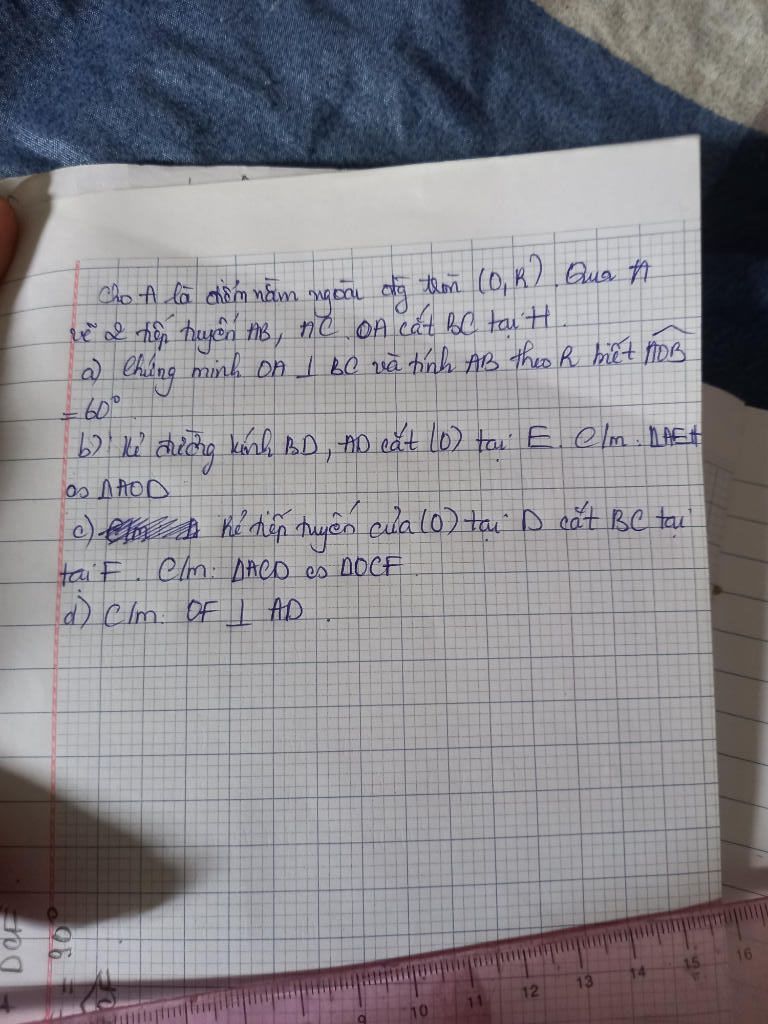 Cho A là điểm nằm ngoài đg tròn (O,R). Qua A
vẽ 2 tiếp tuyến AB, AC. OA cắt BC tại H.
a) Chứng minh OA ⊥ BC và tính AB theo R biết AOB
= 60°.
b) Kẻ đường kính BD, AD cắt (O) tại E. C/m: ΔAEH
∽ ΔAOD
c) Kẻ tiếp tuyến của (O) tại D cắt BC tại
tại F. C/m: ΔACD ∽ ΔOCF
d) C/m: OF ⊥ AD.
DCF
= 90°
9 10 11 12 13 14 15 16